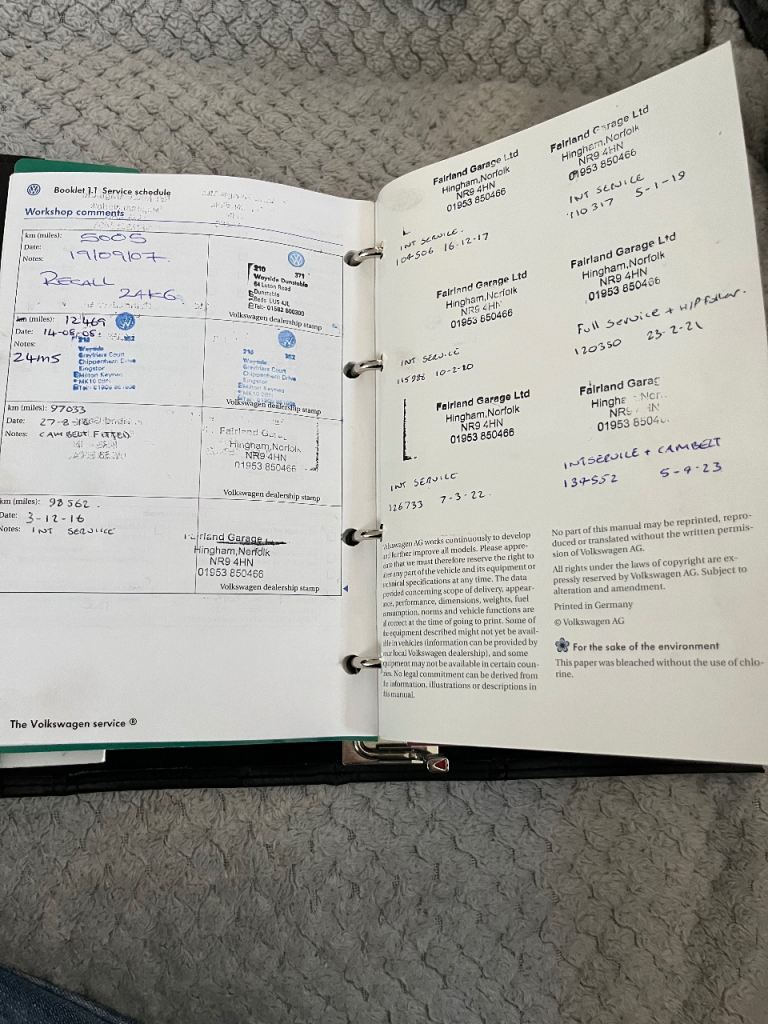 Booklet 1.1 Service schedule
Workshop comments
km (miles): 5005
Date: 19/09/07.
Notes:
RECALL
24K6
210 371
Wayside Dunstable
Dunstable
Beds LU5 4JL
Tel: 01582
Volkswagen dealership stamp
km (miles): 12469
Date: 14-08-08.
Notes:
24M5
Wayside
Greyfriars Court
Chippenham Drive
Kingston
Milton Keynes
Wayside
Greyfriars Court
Chippenham Drive
Kingston
Milton Keynes
Volkswagen dealership stamp
km (miles): 97033
Date: 27-8-
Notes: CAMBELT FITTED
Fairland
Hingham,Norfolk
NR9 4HN
01953 850466
Volkswagen dealership stamp
km (miles): 98562.
Date: 3-12-16
Notes: INT SERVICE
Fairland Garage Ltd
Hingham,Norfolk
NR9 4HN
01953 850466
Volkswagen dealership stamp
The Volkswagen service ®
Fairland Garage Ltd
Hingham,Norfolk
NR9 4HN
01953 850466
INT SERVICE.
104506 16-12-17
Fairland Garage Ltd
Hingham,Norfolk
NR9 4HN
01953 850466
INT SERVICE
110317 5-1-19
Fairland Garage Ltd
Hingham,Norfolk
NR9 4HN
01953 850466
INT SERVICE
115986 10-2-20
Fairland Garage Ltd
Hingham,Norfolk
NR9 4HN
01953 850466
Full Service + H/P Follen.
120350 23-2-21
Fairland Garage Ltd
Hingham,Norfolk
NR9 4HN
01953 850466
INT SERVICE
126733 7-3-22.
Fairland Garag
Hingha Nor
NR9 HN
01953 8504
INT SERVICE + CAMBELT
134552 5-9-23
Volkswagen AG works continuously to develop
and further improve all models. Please appre-
ciate that we must therefore reserve the right to
alter any part of the vehicle and its equipment or
technical specifications at any time. The data
provided concerning scope of delivery, appear-
ance, performance, dimensions, weights, fuel
consumption, norms and vehicle functions are
all correct at the time of going to print. Some of
the equipment described might not yet be avail-
able in vehicles (information can be provided by
your local Volkswagen dealership), and some
equipment may not be available in certain coun-
tries. No legal commitment can be derived from
the information, illustrations or descriptions in
this manual.
No part of this manual may be reprinted, repro-
duced or translated without the written permis-
sion of Volkswagen AG.
All rights under the laws of copyright are ex-
pressly reserved by Volkswagen AG. Subject to
alteration and amendment.
Printed in Germany
© Volkswagen AG
For the sake of the environment
This paper was bleached without the use of chlo-
rine.